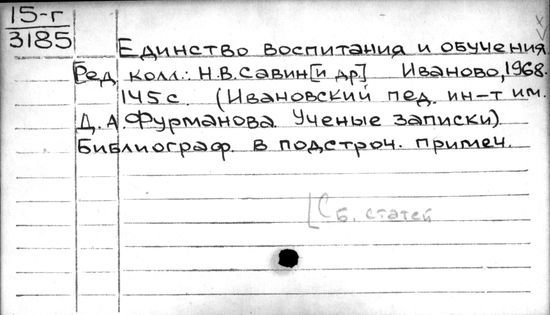 15-г
3185
Единство воспитания и обучения
Ред. колл.: Н.В.Савин[и др] Иваново, 1968.
145 с. (Ивановский пед. ин-т им.
Д.А.Фурманова. Ученые записки)
Библиограф. в подстроч. примеч.
[Сб. статей